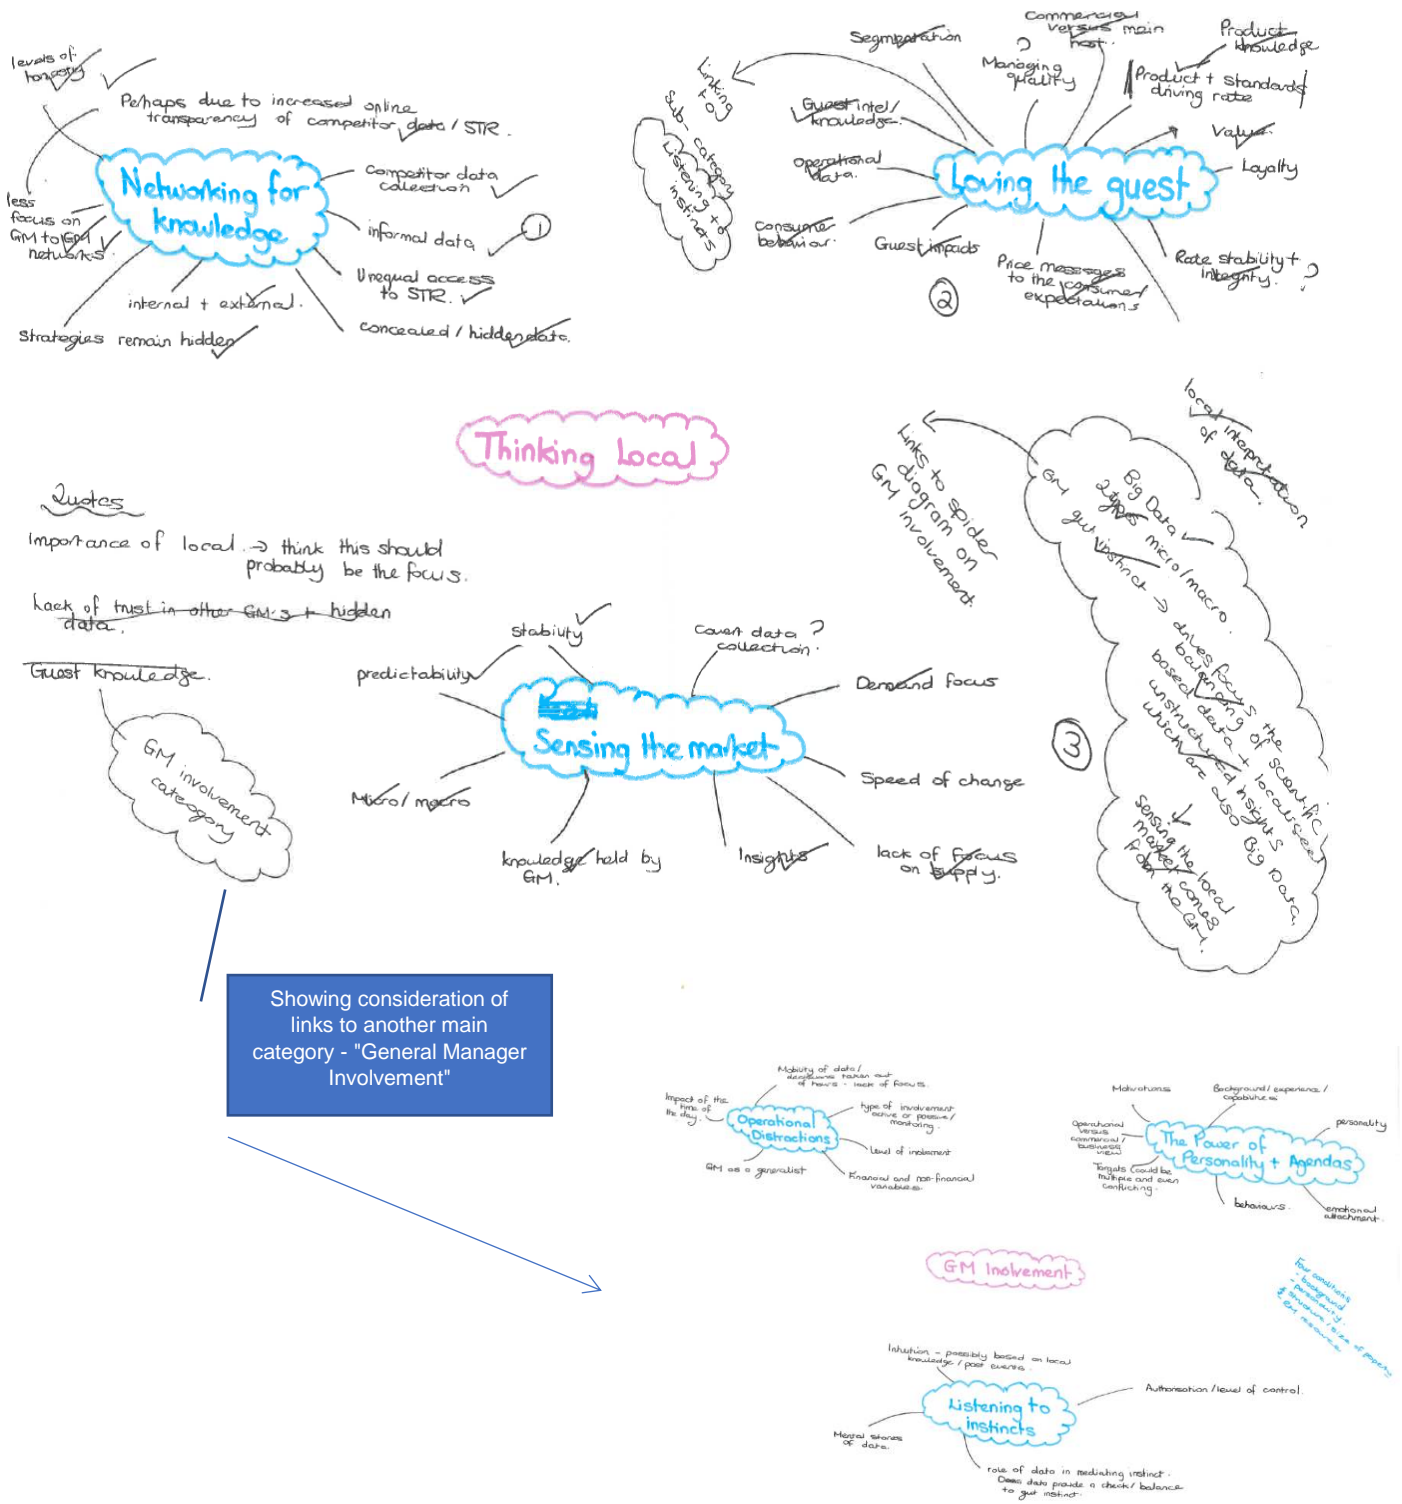 levels of
honesty
Perhaps due to increased online
transparency of competitor data / STR.
Networking for
knowledge
Competitor data
collection
informal data
1
Unequal access
to STR.
concealed / hidden data.
internal + external.
Strategies remain hidden
less
focus on
GM to GM
networks.
Linking
to
sub-category
Listening to
instincts
Segmentation
Commercial
versus main
host.
?
Managing
quality
Product
knowledge
Product + standards
driving rate
Guest intel/
knowledge.
Value.
Operational
data.
Loving the guest
Loyalty
Consumer
behaviour.
Guest impacts
2
Price messages
to the consumer/
expectations
Rate stability +
Integrity. ?
Thinking Local
Quotes
Importance of local. → think this should
probably be the focus.
Lack of trust in other GM's + hidden
data.
Guest knowledge.
GM involvement
category
stability
predictability
Covert data ?
collection.
Demand focus
Sensing the market
Speed of change
Micro/macro
knowledge held by
GM.
Insights
lack of focus
on supply.
Links to spider
diagram on
GM involvement
local interpretation
of data.
Big Data
2 types micro/macro.
GM gut instinct → drives focus the
balancing of scientific
based data + localised
unstructured insights
which are also Big Data.
3
Sensing the local
market comes
from the GM.
Showing consideration of
links to another main
category - "General Manager
Involvement"
Mobility of data/
decisions taken out
of hours - lack of focus.
Impact of the
time of
the day.
Operational
Distractions
type of involvement
active or passive/
monitoring.
Level of involvement
GM as a generalist
Financial and non-financial
variables.
Motivations
Background / experience /
capabilities
personality
Operational
versus
commercial/
business
view
The Power of
Personality + Agendas
Targets (could be
multiple and even
conflicting.
behaviours.
emotional
attachment.
GM Involvement
Four conditions
- background
- personality.
structure / size of property
GM resource
Intuition - possibly based on local
knowledge / past events.
Listening to
instincts
Authorisation / level of control.
Mental stores
of data.
role of data in mediating instinct.
Does data provide a check / balance
to gut instinct.